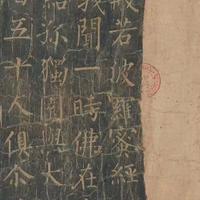 般若波羅蜜經
我聞一時佛在
給孤獨園與大
百五十人俱尒